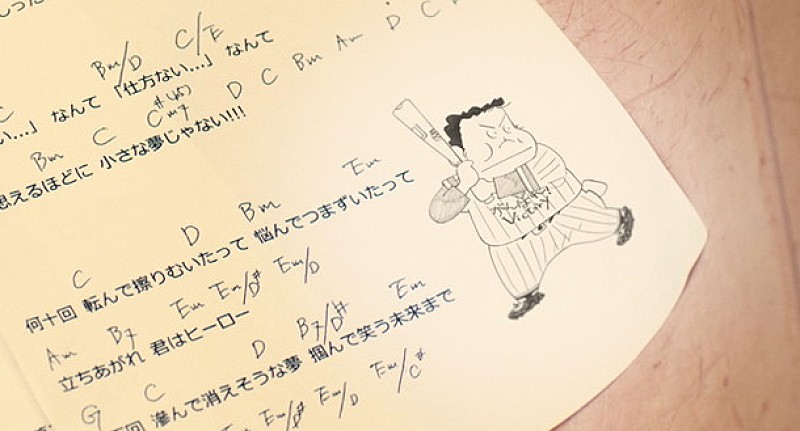 C Bm/D C/E
い…」 なんて 「仕方ない…」 なんて
Bm C C#m7 D C Bm Am D C D
思えるほどに 小さな夢じゃない!!!
C D Bm Em
何十回 転んで擦りむいたって 悩んでつまずいたって
Am B7 Em Em/D# Em/D
立ちあがれ 君はヒーロー
G C D B7/D# Em
回 滲んで消えそうな夢 掴んで笑う未来まで
Em Em/D# Em/D Em/C#
Victory